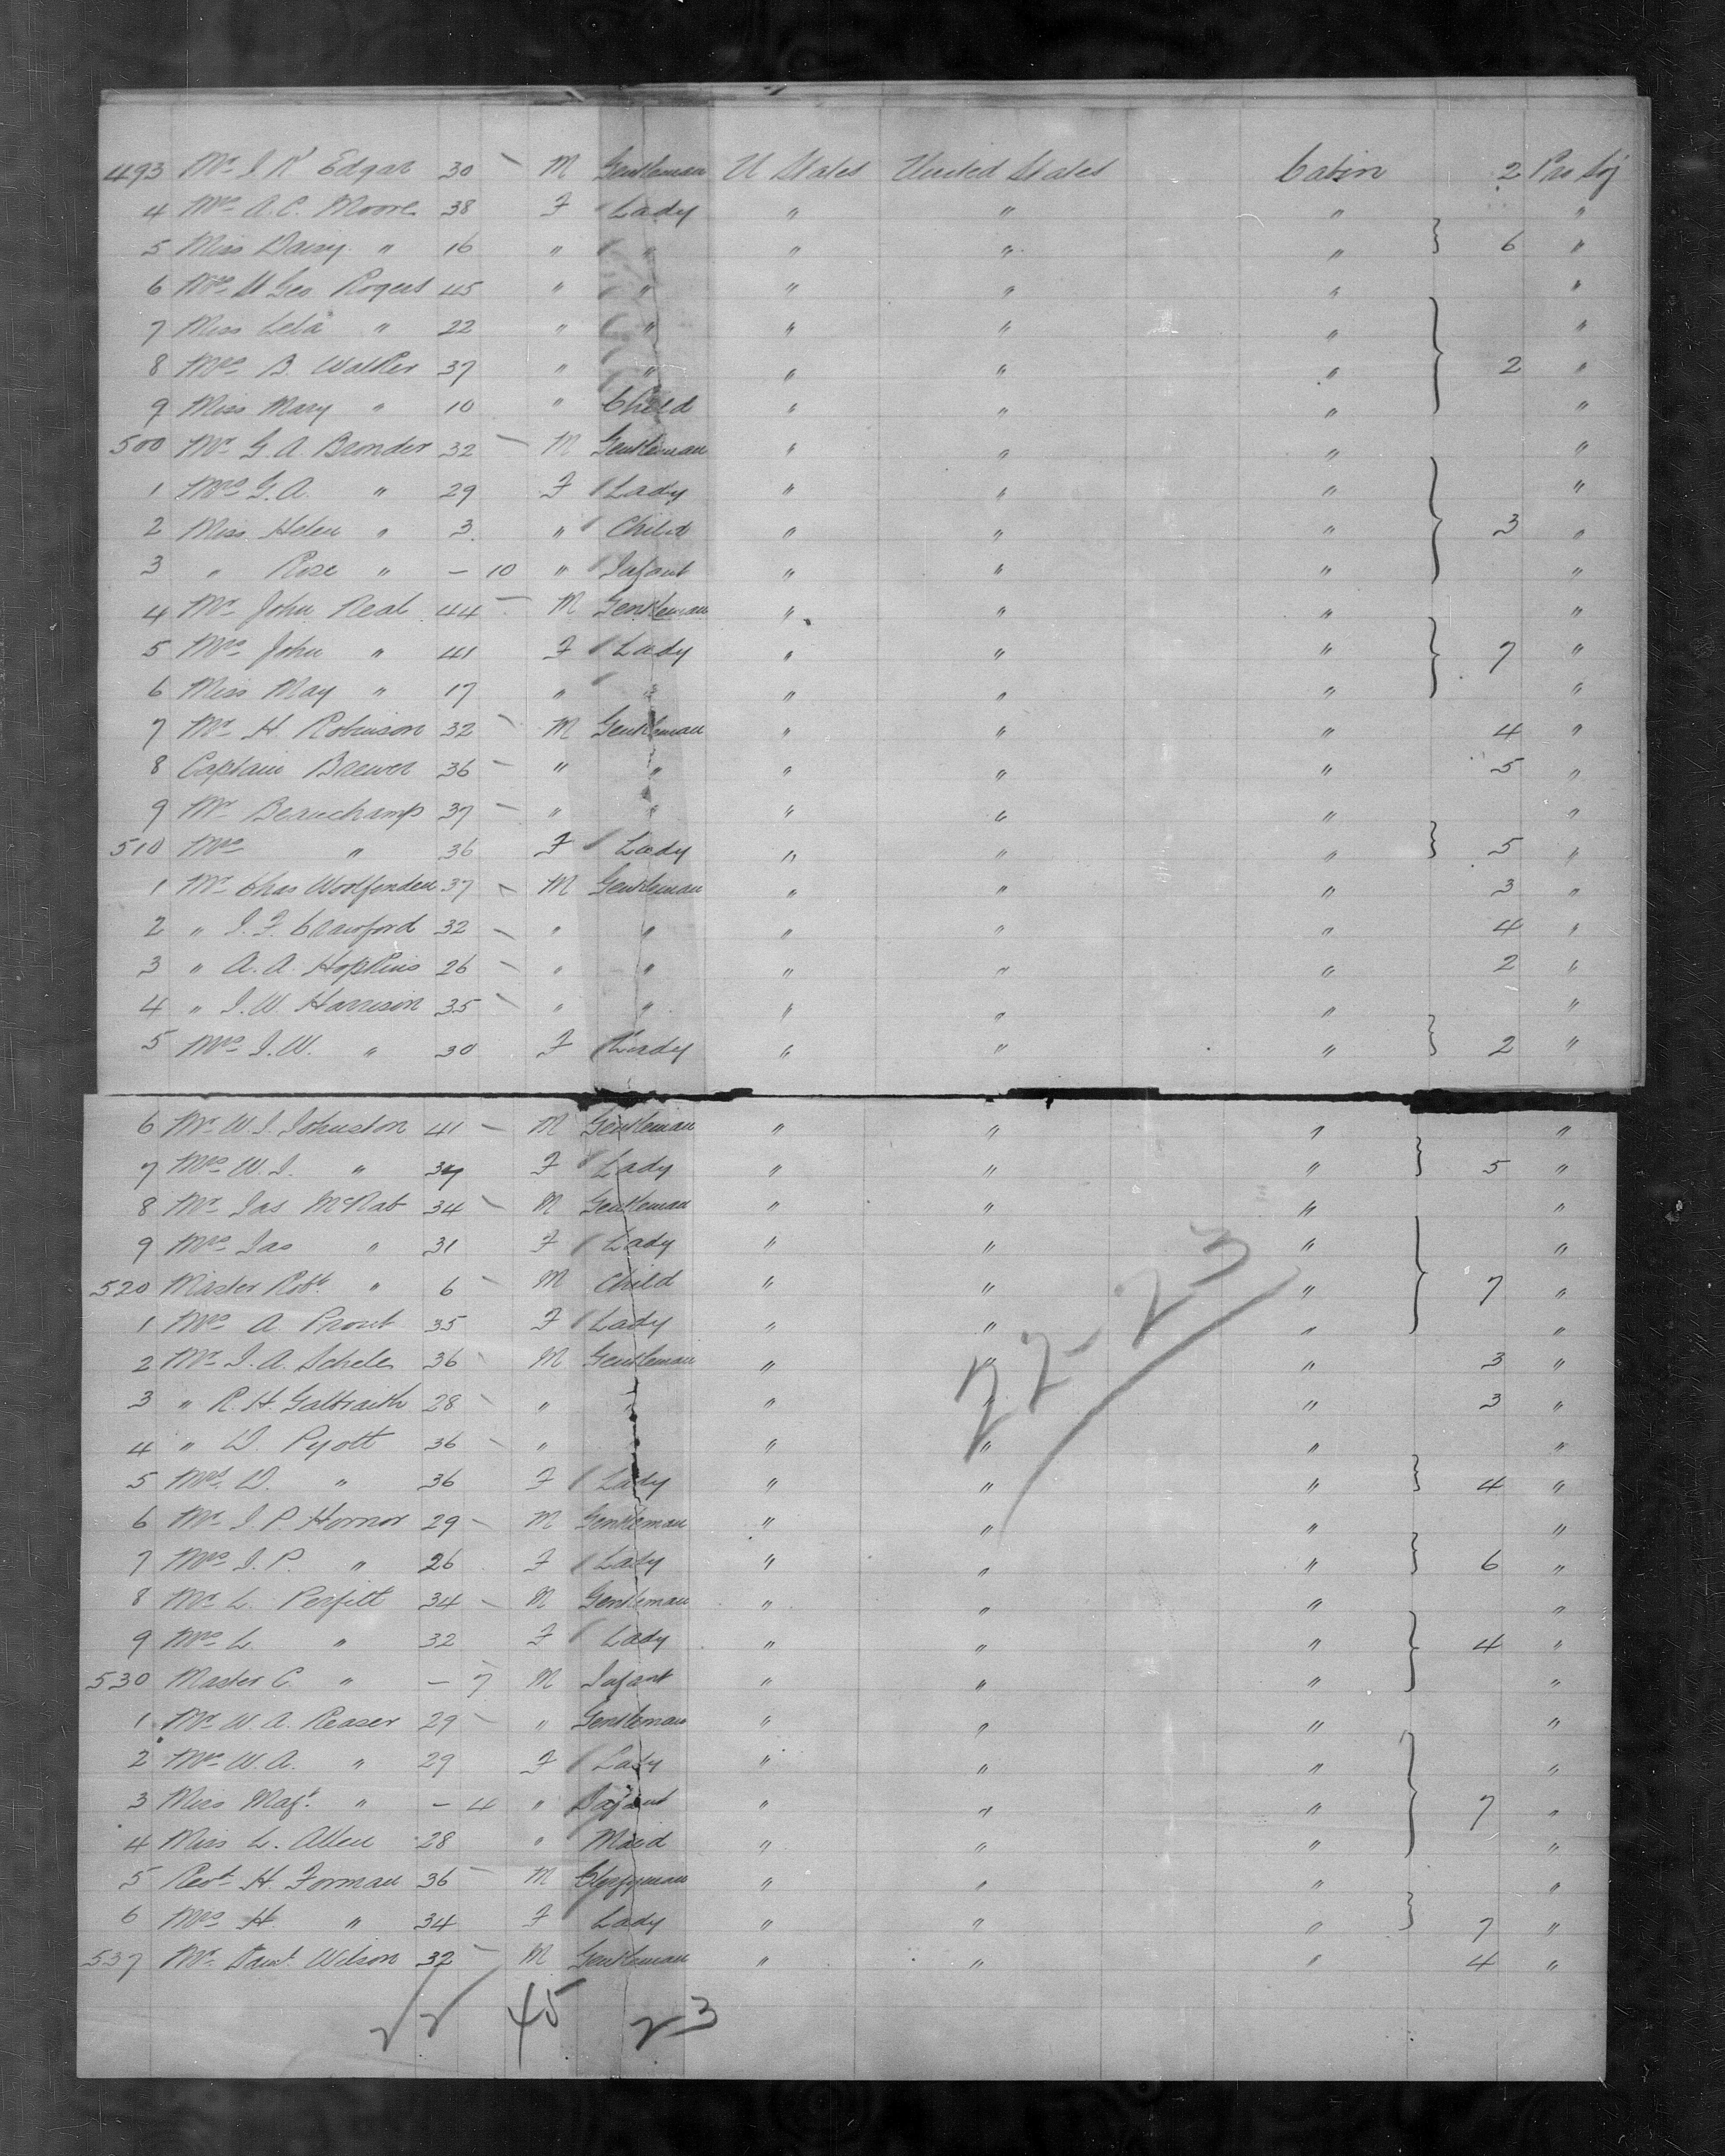 493 Mr. J. R. Edgar 30 – M Gentleman U States United States Cabin 2 Pro Soj
4 Mrs A. C. Moore 38 F Lady " " " "
5 Miss Daisy " 16 " " " " " } 6 "
6 Mrs Geo. Rogers 45 " " " " " "
7 Miss Lela " 22 " " " " " "
8 Mrs B. Walker 37 " " " " " } 2 "
9 Miss Mary " 10 " Child " " " "
500 Mr G. A. Bronder 32 – M Gentleman " " " "
1 Mrs G. A. " 29 F Lady " " " "
2 Miss Helen " 3 " Child " " " } 3 "
3 " Rose " – 10 " Infant " " " "
4 Mr John Neal 44 – M Gentleman " " " "
5 Mrs John " 41 F Lady " " " } 7 "
6 Miss May " 17 " " " " " "
7 Mr H Robinson 32 – M Gentleman " " " 4 "
8 Captain Brewer 36 – " " " " " 5 "
9 Mr Beauchamp 37 – " " " " " "
510 Mrs " 36 F Lady " " " } 5 "
1 Mr Chas Woolfenden 37 – M Gentleman " " " 3 "
2 " J. F. Crawford 32 – " " " " " 4 "
3 " A. A. Hopkins 26 – " " " " " 2 "
4 " J. W. Harrison 35 – " " " " " "
5 Mrs J. W. " 30 F Lady " " " } 2 "
6 Mr W. J. Johnston 41 – M Gentleman " " " "
7 Mrs W. J. " 34 F Lady " " " } 5 "
8 Mr Jas McNab 34 – M Gentleman " " " "
9 Mrs Jas " 31 F Lady " " " "
520 Master Robt. " 6 – M Child " " " } 7 "
1 Mrs A. Prout 35 F Lady " " " "
2 Mr J. A. Schele 36 – M Gentleman " " " 3 "
3 " R. H. Galbraith 28 – " " " " " 3 "
4 " D. Pyott 36 – " " " " "
5 Mrs D. " 36 F Lady " " " } 4 "
6 Mr J. P. Hornor 29 – M Gentleman " " " "
7 Mrs J. P. " 26 F Lady " " " } 6 "
8 Mr L. Perfitt 34 – M Gentleman " " " "
9 Mrs L. " 32 F Lady " " " } 4 "
530 Master C. " – 7 M Infant " " " "
1 Mr W. A. Reaser 29 – " Gentleman " " " "
2 Mrs W. A. " 29 F Lady " " " "
3 Miss Magt. " – 4 " Infant " " " } 7 "
4 Miss L. Allen 28 " Maid " " " "
5 Revd H. Forman 36 – M Clergyman " " " "
6 Mrs H. " 34 F Lady " " " } 7 "
537 Mr Danl. Wilson 32 – M Gentleman " " " 4 "
22 - 23
22 45 23